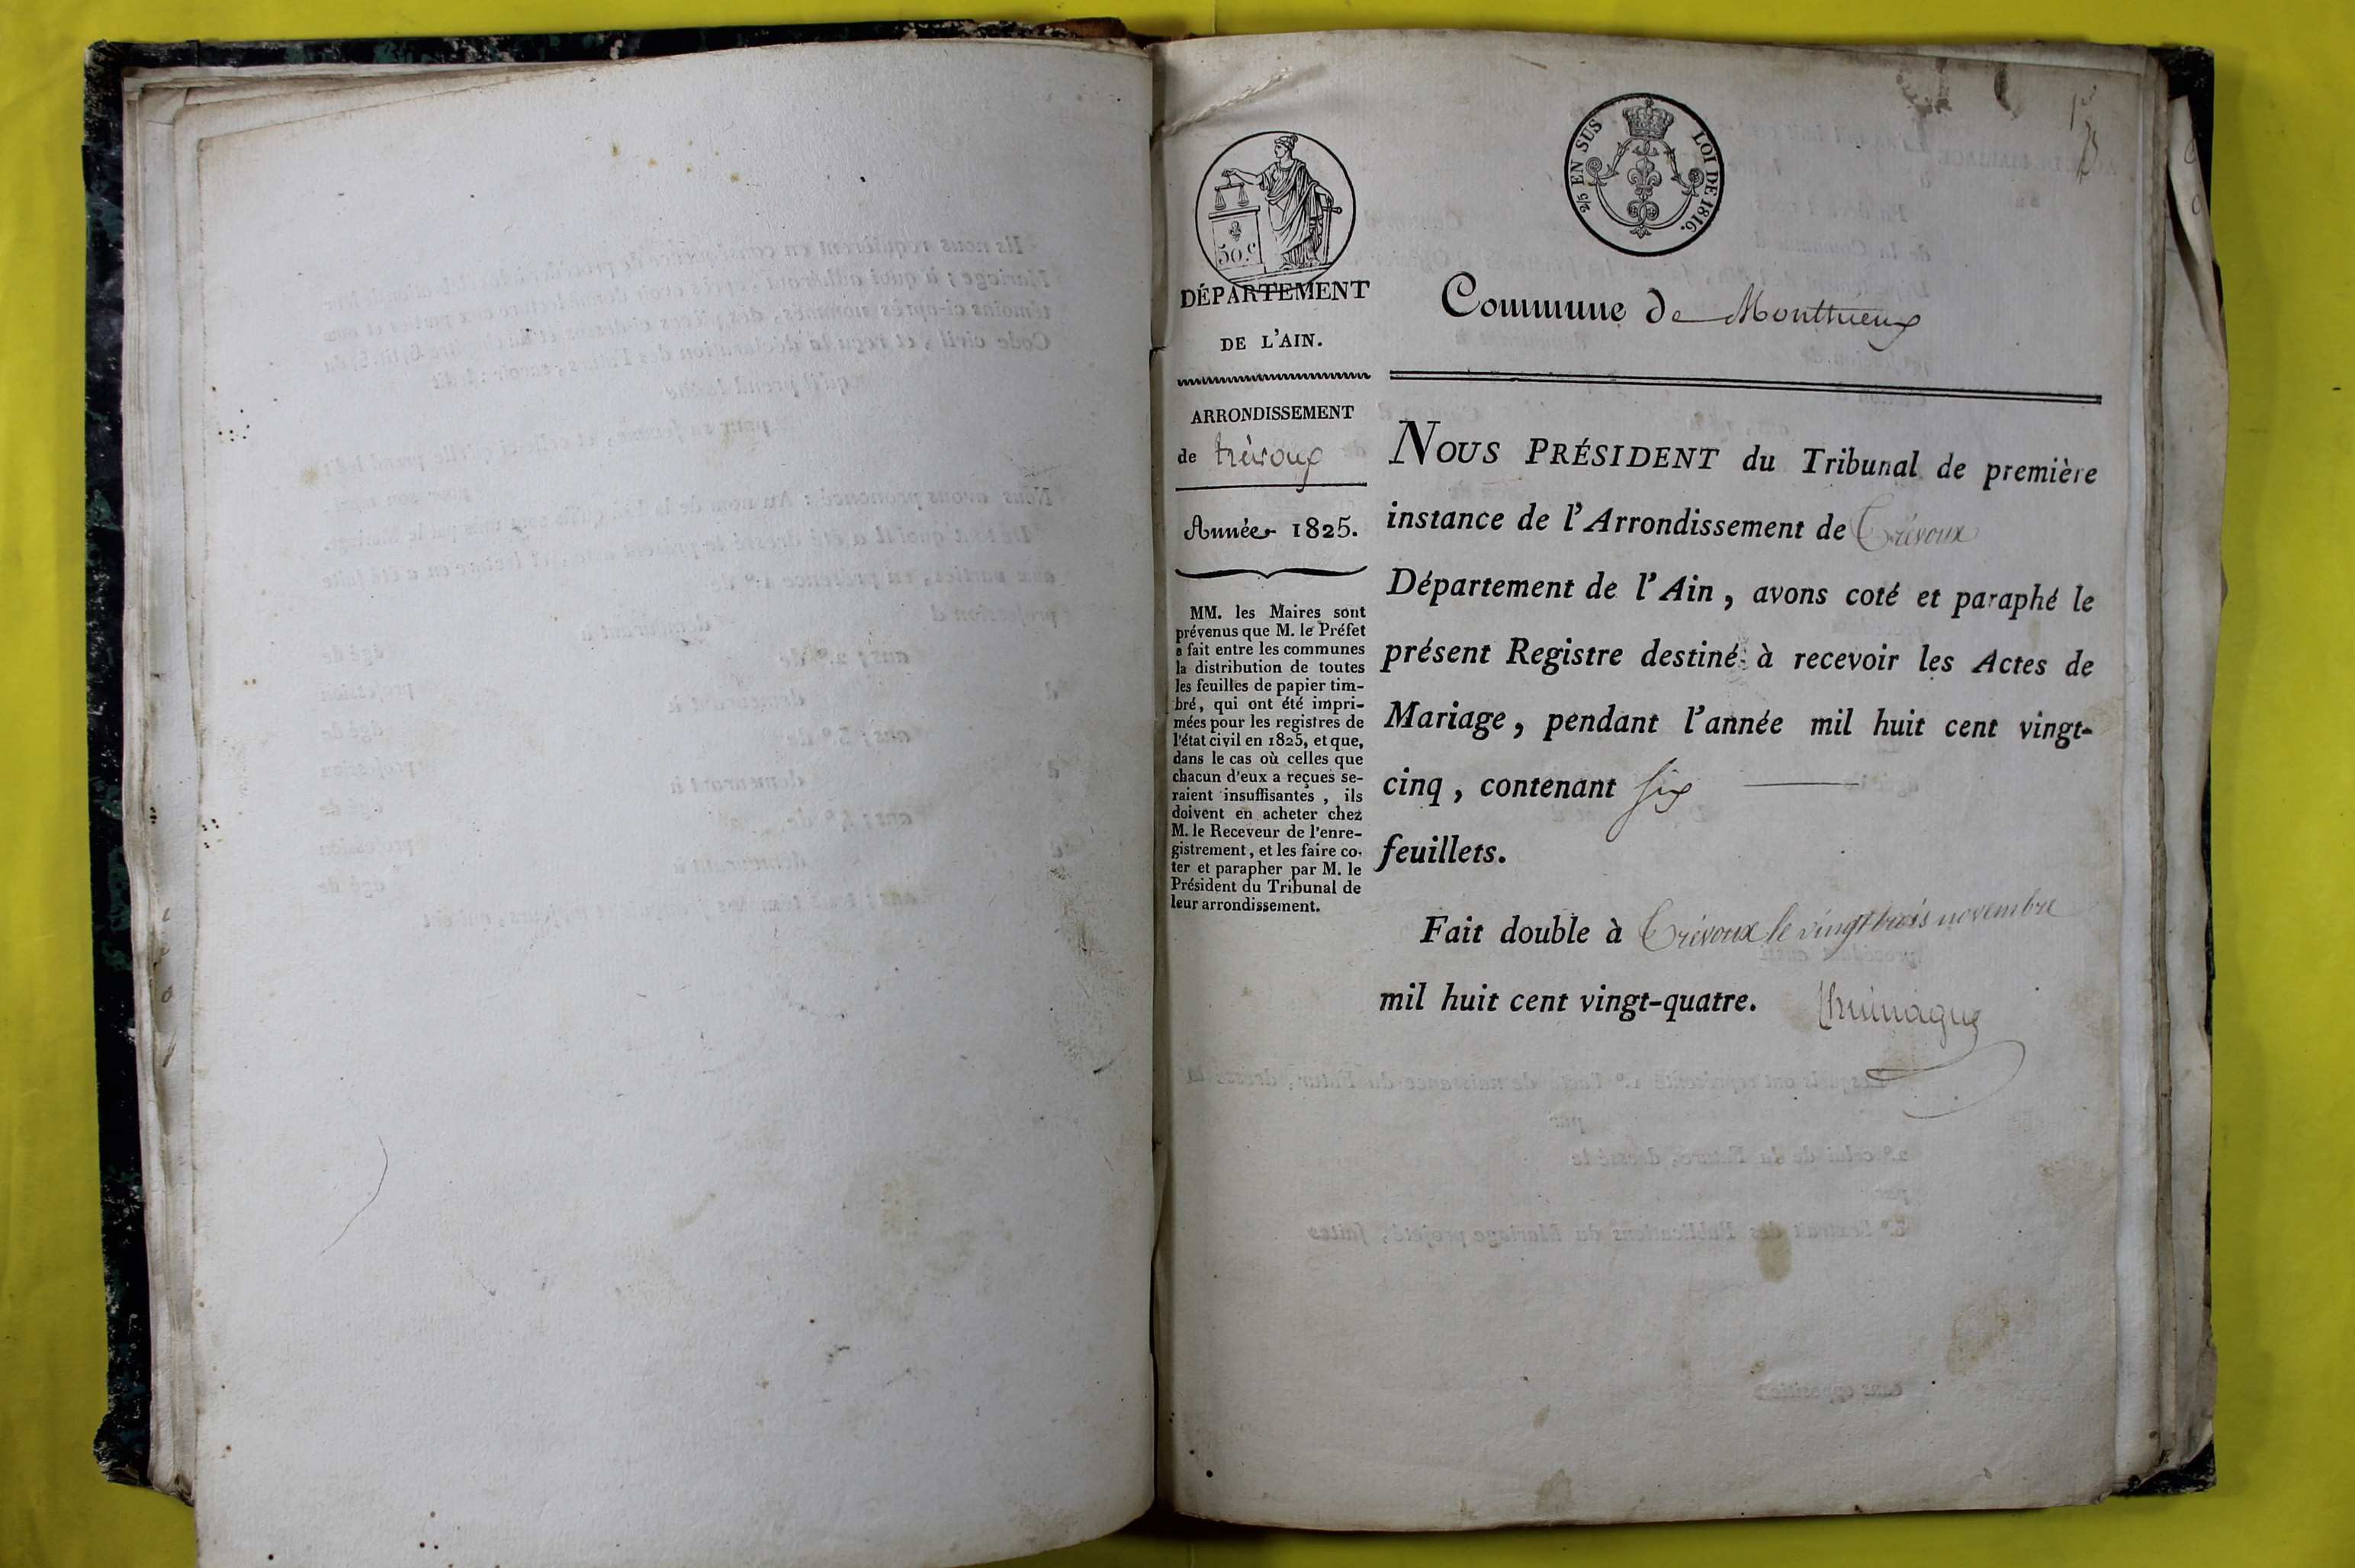 50.c
2/5 EN SUS LOI DE 1816.
DÉPARTEMENT
DE L'AIN.
ARRONDISSEMENT
de trévoux
Année 1825.
MM. les Maires sont
prévenus que M. le Préfet
a fait entre les communes
la distribution de toutes
les feuilles de papier tim-
bré, qui ont été impri-
mées pour les registres de
l'état civil en 1825, et que,
dans le cas où celles que
chacun d'eux a reçues se-
raient insuffisantes, ils
doivent en acheter chez
M. le Receveur de l'enre-
gistrement, et les faire co-
ter et parapher par M. le
Président du Tribunal de
leur arrondissement.
Commune de Monthieux
NOUS PRÉSIDENT du Tribunal de première
instance de l'Arrondissement de Trévoux
Département de l'Ain, avons coté et paraphé le
présent Registre destiné à recevoir les Actes de
Mariage, pendant l'année mil huit cent vingt-
cinq, contenant six
feuillets.
Fait double à Trévoux le vingt trois novembre
mil huit cent vingt-quatre.